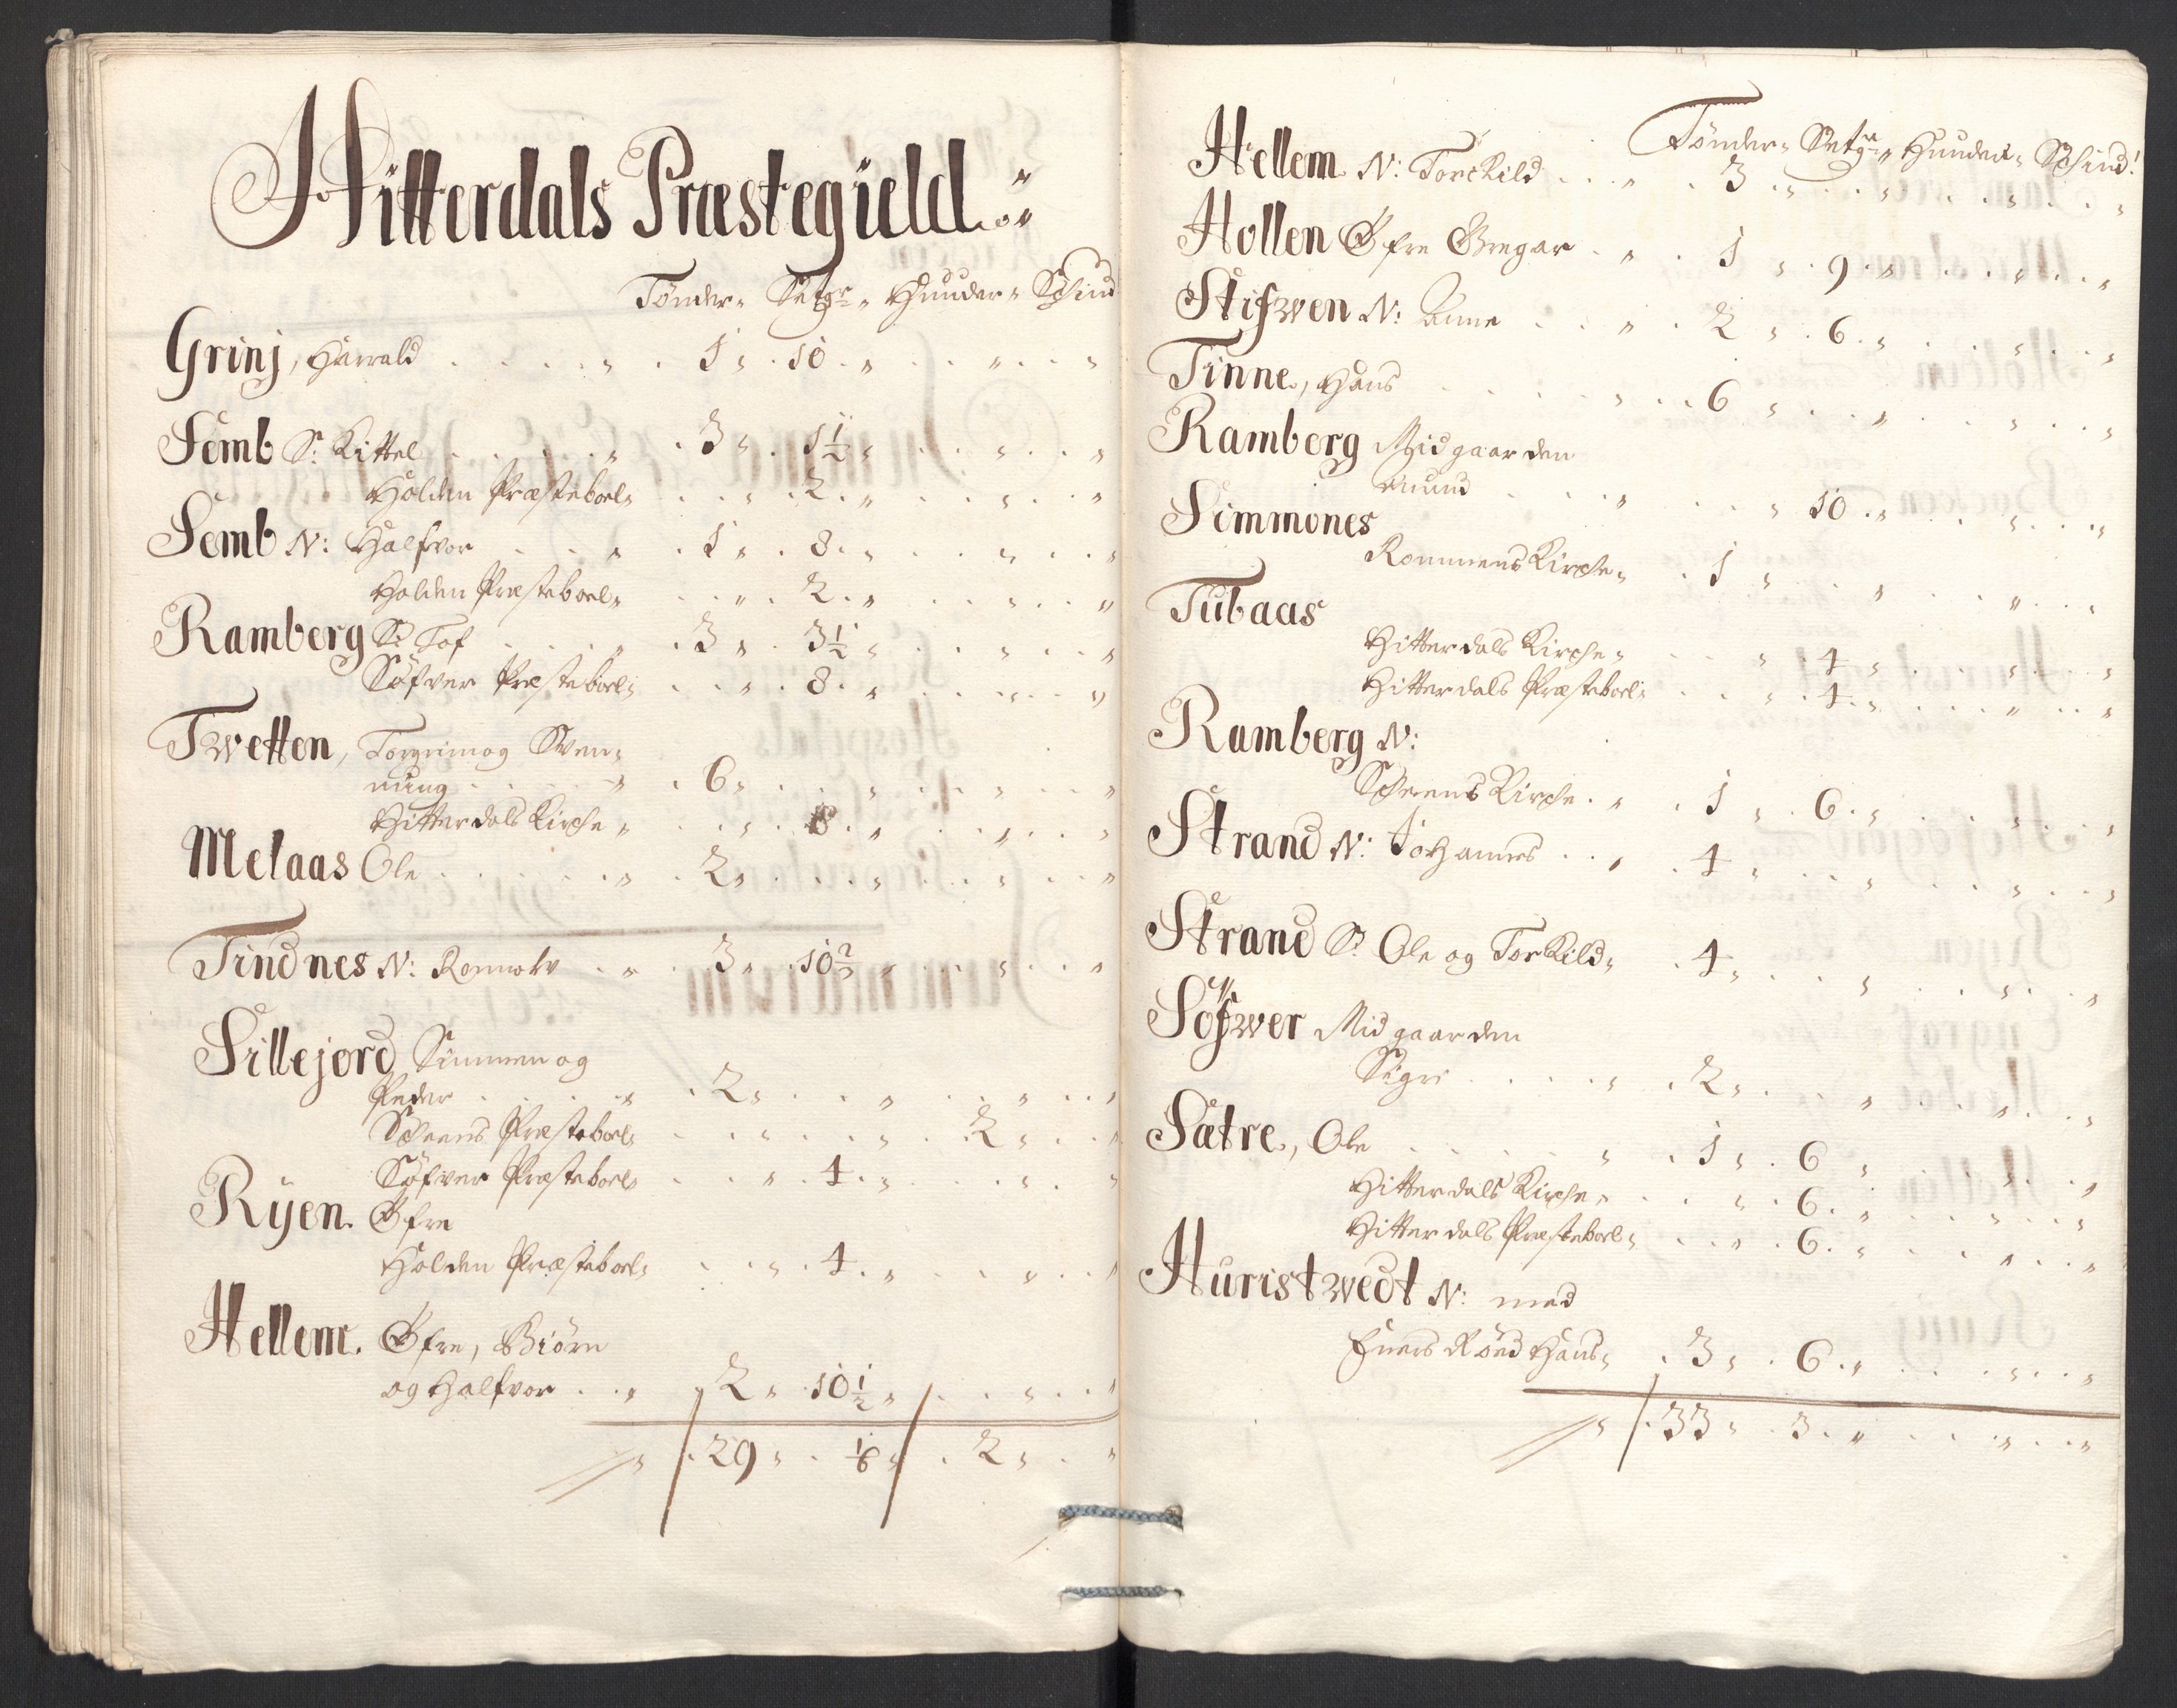 Hitterdals Præstegield
Tönder " Setgr " Huuder " Schind
Grinj, Harrald . . . . " . 1 " . 10 . " . . " . . "
Semb S: Kittel . . . . " . 3 " . 1 1/2 " . . " . . "
Holden Præsteboel " . . " . 2 . " . . " . . "
Semb N: Halfvor . . . " . 1 " . 8 . " . . " . . "
Holden Præsteboel " . . " . 2 . " . . " . . "
Ramberg S: Tof . . . " . 3 " . 3 1/2 " . . " . . "
Söfver Præsteboel " . . " . 8 . " . . " . . "
Twetten, Torgrim og Sven=
nung . . . " . 6 " . . " . . " . . "
Hitterdals Kirche " . . " . 8 . " . . " . . "
Melaas Ole . . . . " . 2 " . . . " . . " . . "
Tindnes N: Ronnolv . . " . 3 " . 10 2/3 " . . " . . "
Sillejord Simmen og
Peder . . . . " . 2 " . . " . . " . . "
Scheens Præsteboel " . . " . . " . 2 " . . "
Söfver Præsteboel " . . " . 4 . " . . " . . "
Ryen. Öfre
Holden Præsteboel " . . " . 4 . " . . " . . "
Hellem. Öfre, Biörn
og Halfvor . . " 2 " 10 1/2 " . . " . . "
" . 29 " . 1/6 " . 2 " . "
Tönder " Setgr " Huuder " Schind!
Hellem N: Torckild . . " . 3 " . . " . . " . . "
Hollen Öfre Gregar . " . 1 " . 9 . " . . " . . "
Stifwen N: Anne . . " . 2 " . 6 . " . . " . . "
Tinne, Hans . . . . " . . 6 " . . " . . " . . "
Ramberg Midgaarden
Amund . . . " . . " 10 . " . . " . . "
Simmones
Rommens Kirche " . 1 " . . " . . " . . "
Tubaas
Hitterdals Kirche " . . " . 4 " . . " . . "
Hitterdals Præsteboel " . . " . 4 . " . . " . . "
Ramberg N:
Scheens Kirche . " . 1 " . 6 . " . . " . . "
Strand N: Johannes . . " . 4 " . . " . . " . . "
Strand S: Ole og Torkild " . 4 " . . " . . " . . "
Söfwer Midgaarden
Sigri . . . . " . 2 " . . " . . " . . "
Sätre, Ole . . . . " . 1 " . 6 " . . " . . "
Hitterdals Kirche " . . " . 6 . " . . " . . "
Hitterdals Præsteboel " . . " . 6 . " . . " . . "
Huristwedt N: med
Röed Hans " . 3 " . 6 . " . . " . . "
" . 33 " . 3 . " . . " . . "